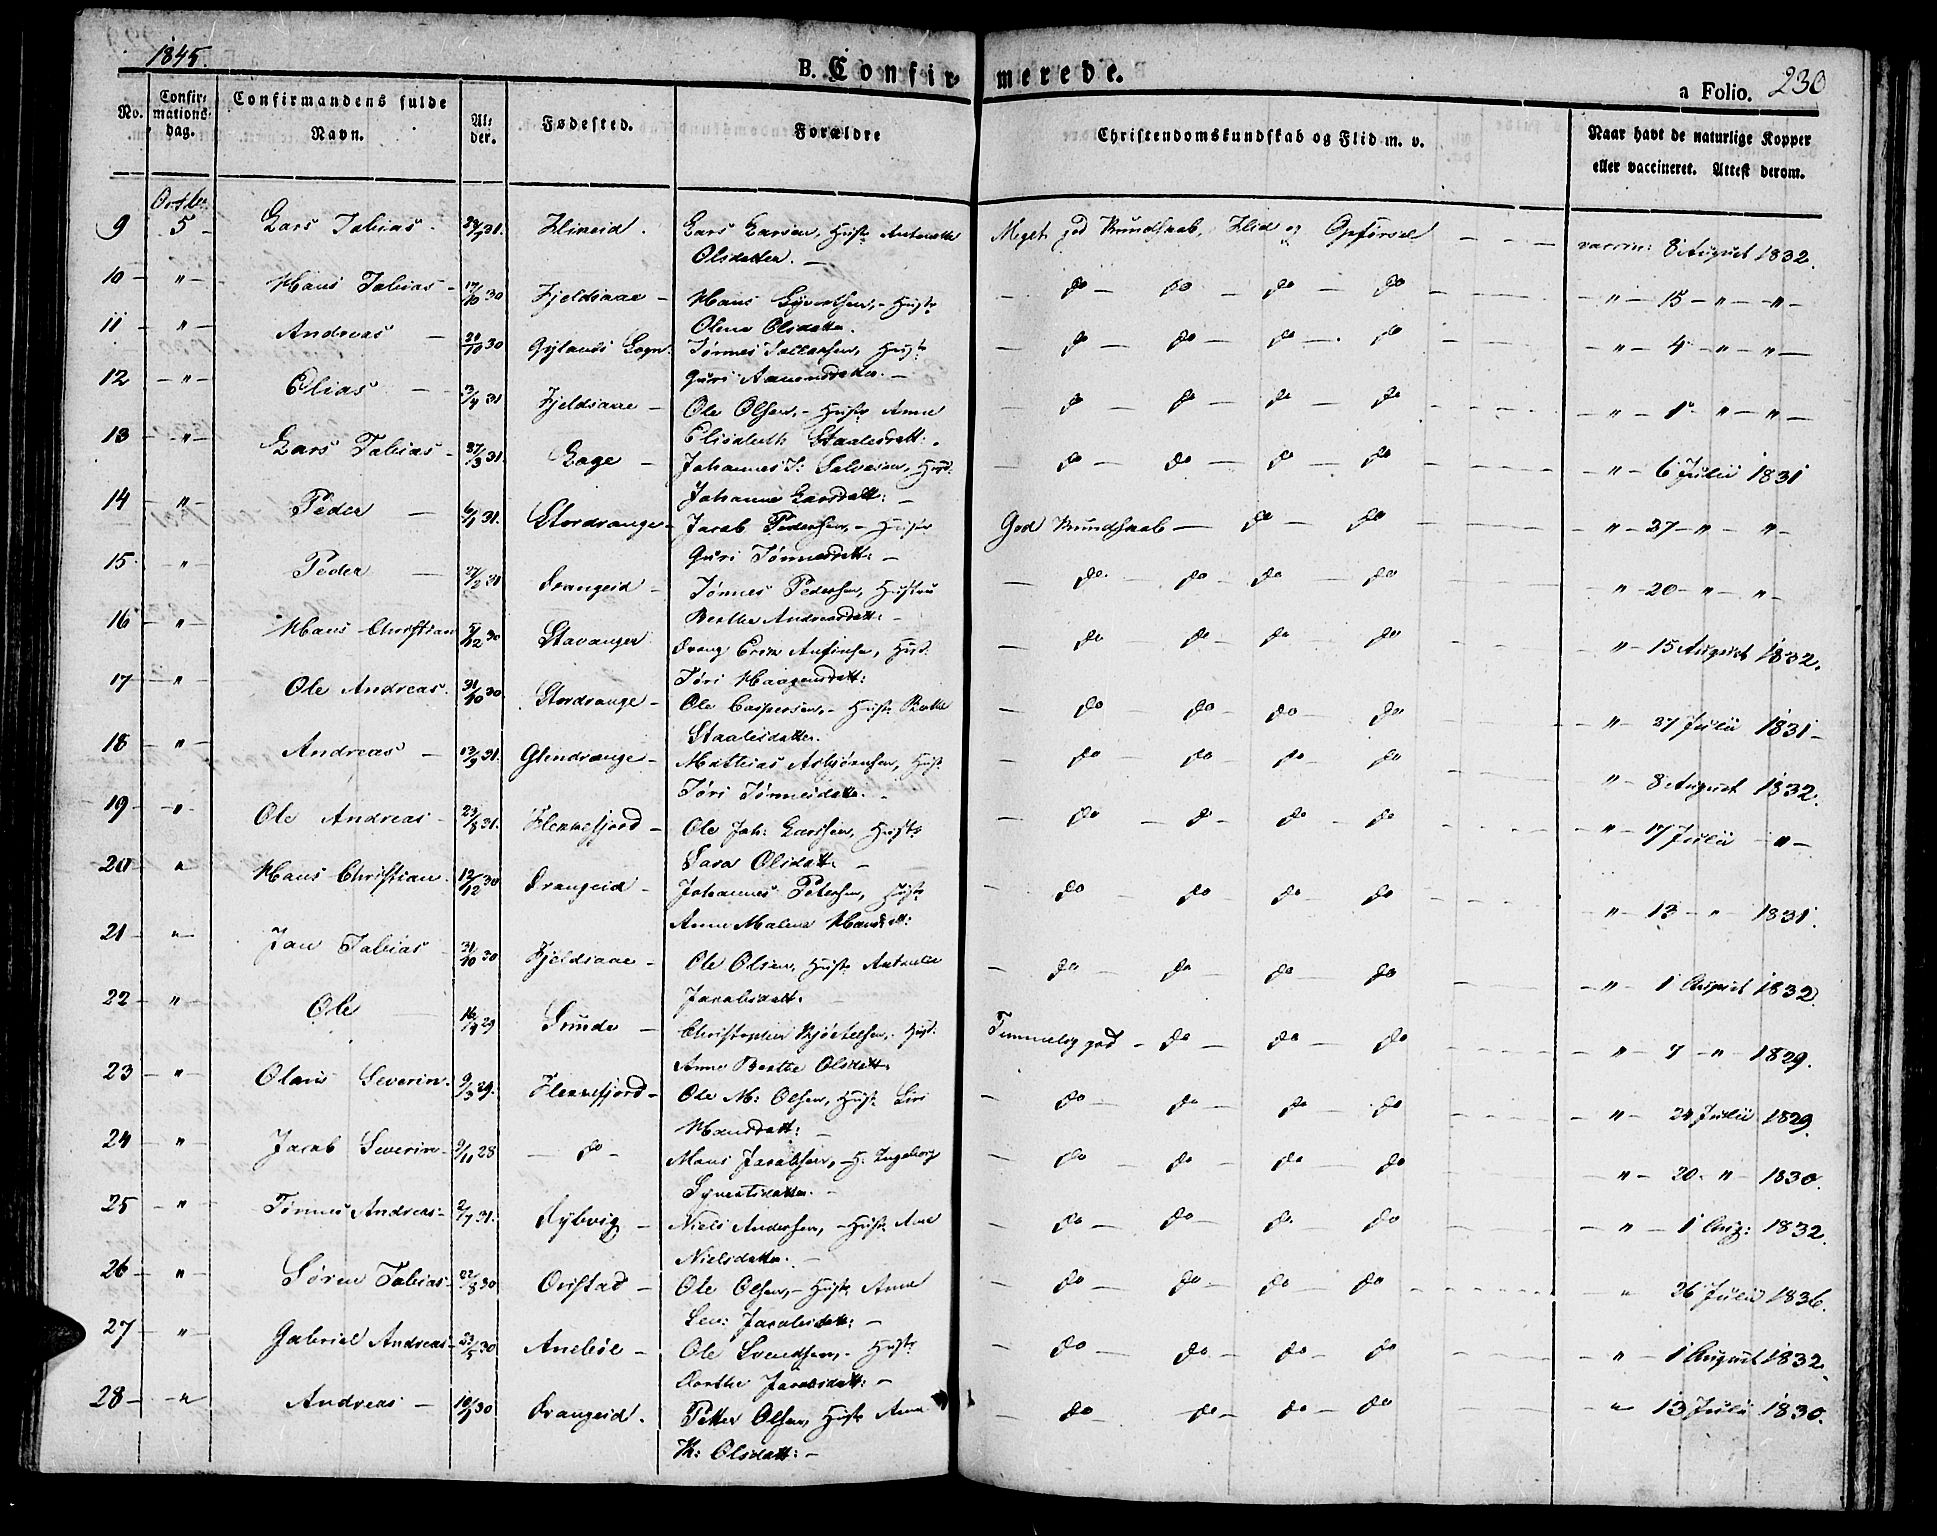 1845.
B. Confir- merede.
a Folio. 230
No. Confirmations-dag. Confirmandens fulde Navn. Alder. Fødested. Forældre Christendomskundskab og Flid m. v. Naar havt de naturlige Kopper eller vaccineret. Attest derom.
Octbr
9 5 - Lars Tobias - 31. Flikeid. Lars Larsen, Hustr Antonette Meget god Kundskab, Flid og Opførsel - - - vaccin: 8 August 1832.
Olsdatter. -
10 - " - Hans Tobias - 17/10 30 Fjeldsaae - Hans Sivertsen, - Hustr - do - do - do - do - - - - " - 15 - " - " -
Olene Olsdatter.
11 - " - Andreas - 20/10 30 Gylands Sogn. Tønnes Tallaksen, Hustr - do - do - do - do - - - - " - 4 - " - " -
Guri Aamundsdatter. -
12 - " - Elias - 3/4 31 Fjeldsaae - Ole Olsen, - Hustr Anne - do - do - do - do - - - - " - 1 - " - " -
Elisabeth Staalesdatt: -
13 - " - Lars Tobias - 27/3 31. Loge - Johannes T: Salvesen, Hust: - do - do - do - do - - - " - 6 Julii 1831
Johanne Larsdatt: -
14 - " - Peder - 6/1 31. Stordrange - Jacob Pedersen, - Hustr God Kundskab - do - do - " - 27 - " - " -
Guri Tønnesdatt: -
15. - " - Peder - 27/2 31 Drangeid - Tønnes Pedersen, Hustru - do - do - do - do - " - 20 - " - " -
Berthe Andreasdatt: -
16 - " - Hans Christian 5/12 30 Stavanger. Dreng Erik Anfinsen, Hust: - do - do - do - do - - - " - 15 August 1832.
Tøri Haagensdatt:
17 - " - Ole Andreas. 31/10 30 Stordrange - Ole Caspersen, - Hustr Berthe - do - do - do - do - - - " - 27 Julii 1831 -
Staalesdatter.
18 - " - Andreas - 13/9 31. Glendrange - Mathias Asbjørnsen, Hustr - do - do - do - do - - - " - 8 August 1832.
Tøri Tønnesdatt. -
19 - " - Ole Andreas - 23/8 31. Flekkefjord - Ole Joh: Larssen, Hustr - do - do - do - do - - - " - 17 Julii - " -
Sara Olsdatt. -
20 - " - Hans Christian. 12/12 30 Drangeid - Johannes Petersen, Hustr - do - do - do - do - " - 13 - " - 1831.
Anne Malene Hansdatt:
21 - " - Jan Tobias - 31/10 30 Fjeldsaae - Ole Olsen, Hustr Antonette - do - do - do - do - - - " - 1 August 1832.
Jacobsdatt. -
22 - " - Ole - 29 Sunde - Christopher Kjøstelsen, - Hust: Temmelig god - do - do - do - - - " - 7 - " - 1829.
Anne Berthe Olsdatt.
23 - " - Olaus Severin. 9/3 29. Flekkefjord - Ole M: Olsen, Hustr Siri - do - do - do - do - - - " - 24 Julii 1829.
Hansdatt: -
24 - " - Jacob Severin - 9/11 28 - do - Hans Jacobsen, - H: Ingeborg - do - do - do - do - " - 20 - " - 1830.
Syvertsdatter. -
25 - " - Tønnes Andreas - 2/7 31. Dybvig - Niels Andersen, - Hustr Ane - do - do - do - do - " - 1 Aug: 1832.
Nielsdatter. -
26 - " - Søren Tobias - 22/8 30 Ovistad - Ole Olsen, - Hustr Anne - do - do - do - do - - - " - 26 Julii 1836.
Sev: Jacobsdatt: -
27 - " - Gabriel Andreas - 23/5 30 Anebøe - Ole Svendsen, - Hustr - do - do - do - do - - - " - 1 August 1832.
Dorthe Jacobsdatt: -
28 - " - Andreas - 30 Drangeid. Petter Olsen, Hustr Anne - do - do - do - do - - - " - 13 Julii 1830.
K: Olsdatt: -